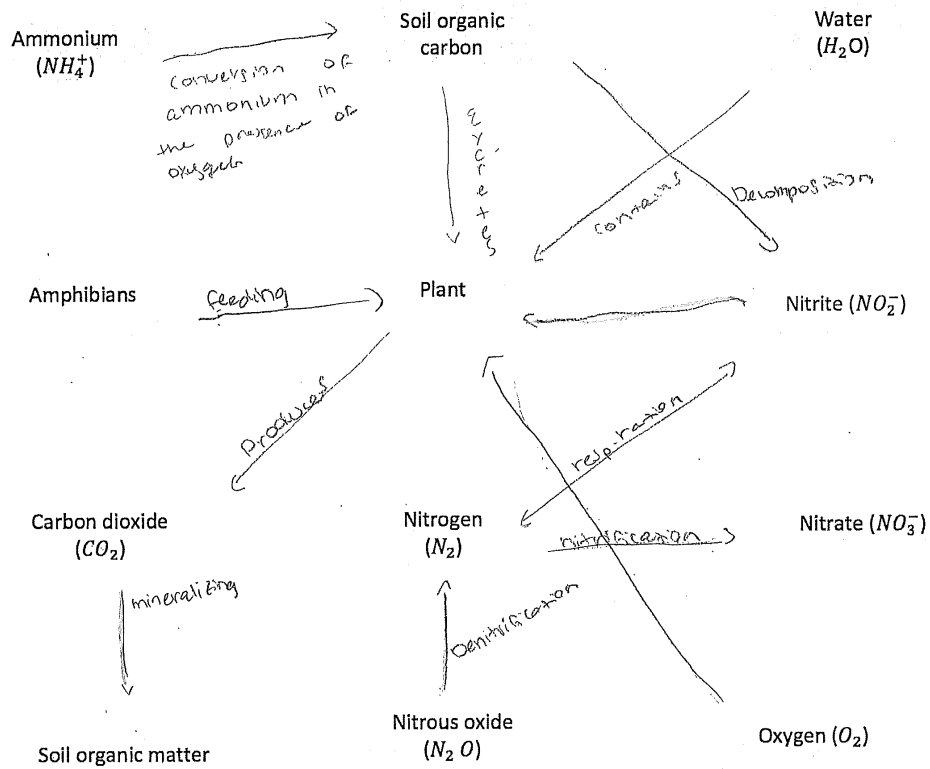 Ammonium
(NH₄⁺)
Soil organic
carbon
Water
(H₂O)
conversion of
ammonium in
the presence of
oxygen
Excretes
contains
Decomposition
Amphibians
feeding
Plant
Nitrite (NO₂⁻)
Produces
respiration
Carbon dioxide
(CO₂)
Nitrogen
(N₂)
nitrification
Nitrate (NO₃⁻)
mineralizing
Denitrification
Soil organic matter
Nitrous oxide
(N₂ O)
Oxygen (O₂)